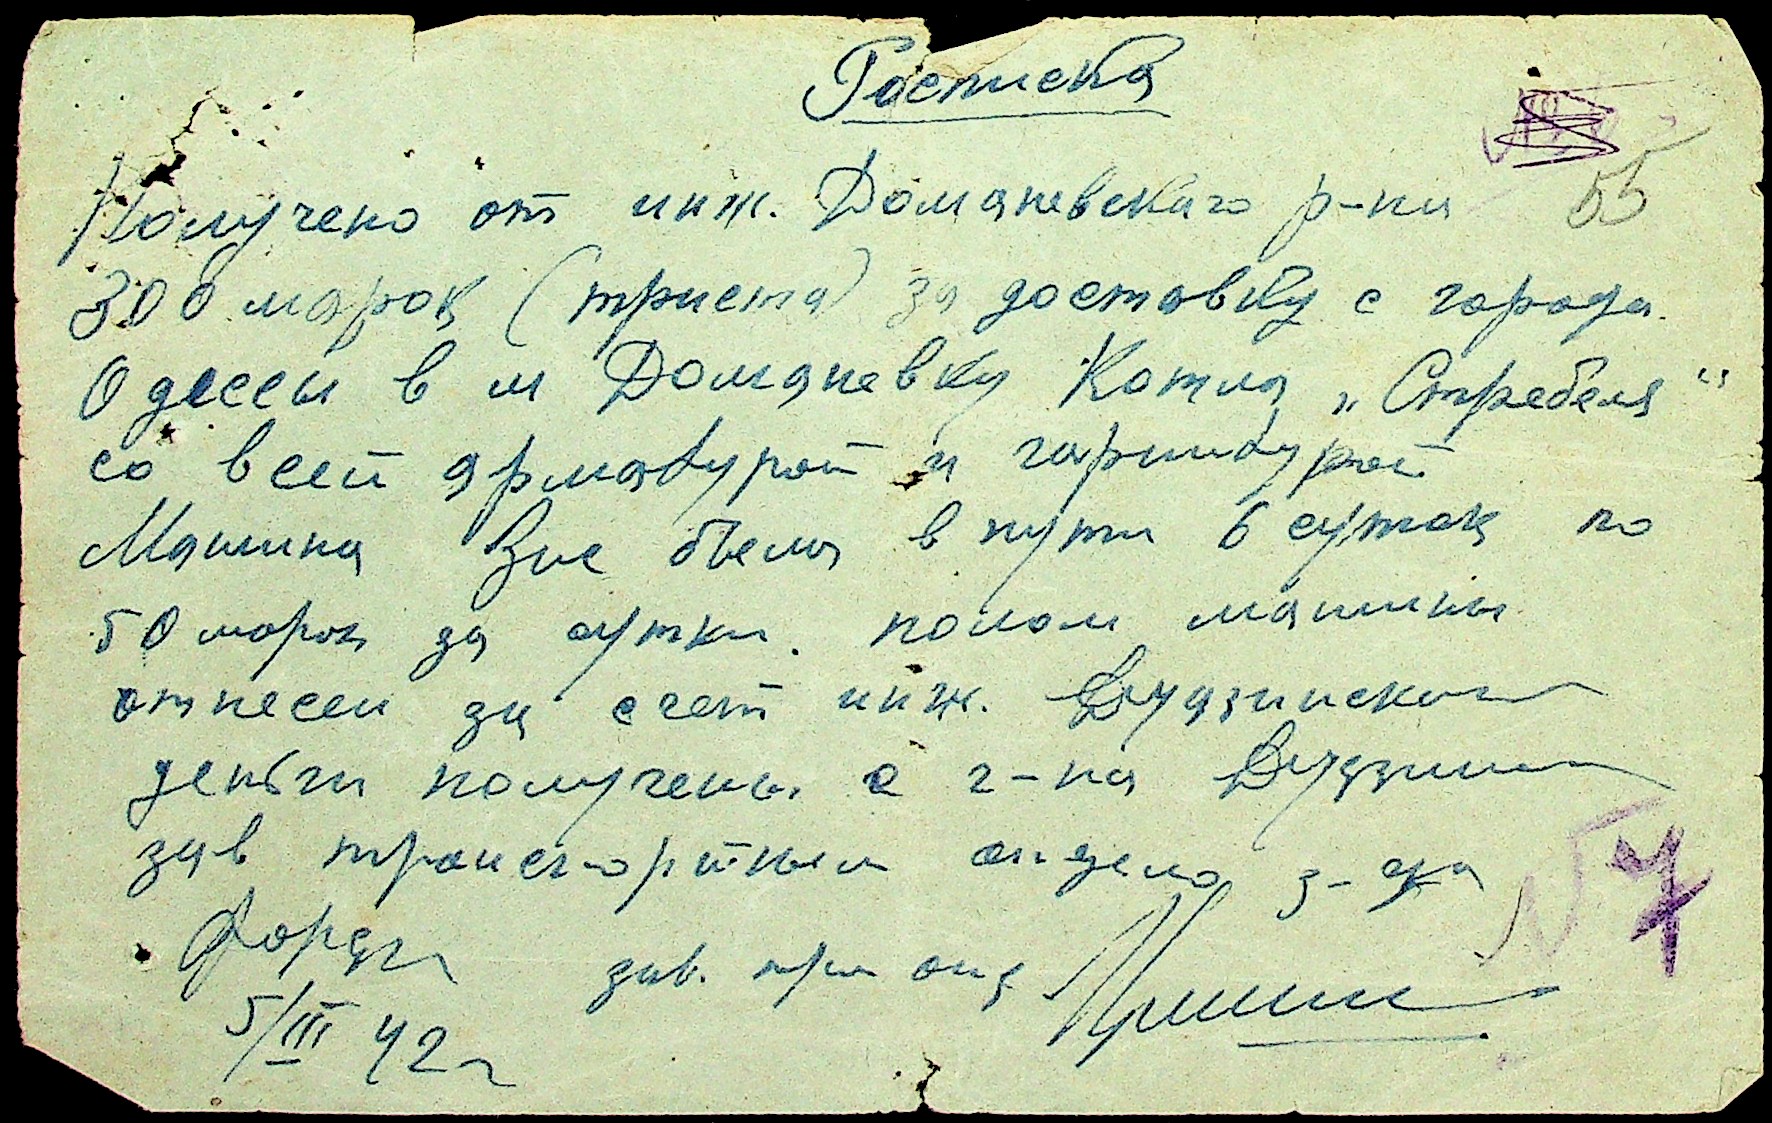 Росписка
Получено от инж. Доманевскаго р-на 55
300 марок (триста) за доставку с города
Одессы в м Доманевку Котла „Стребеля“
со всей арматурой и гарнитурой
Машина Зис была в пути 6 суток по
50 марок за сутки. полом машины
отнесен за счет инж. Дудзинского
деньги получены с г-на Дудзинс
зав транспортным отдела з-да
Форда зав. тр отд
5/III 42 г
№7